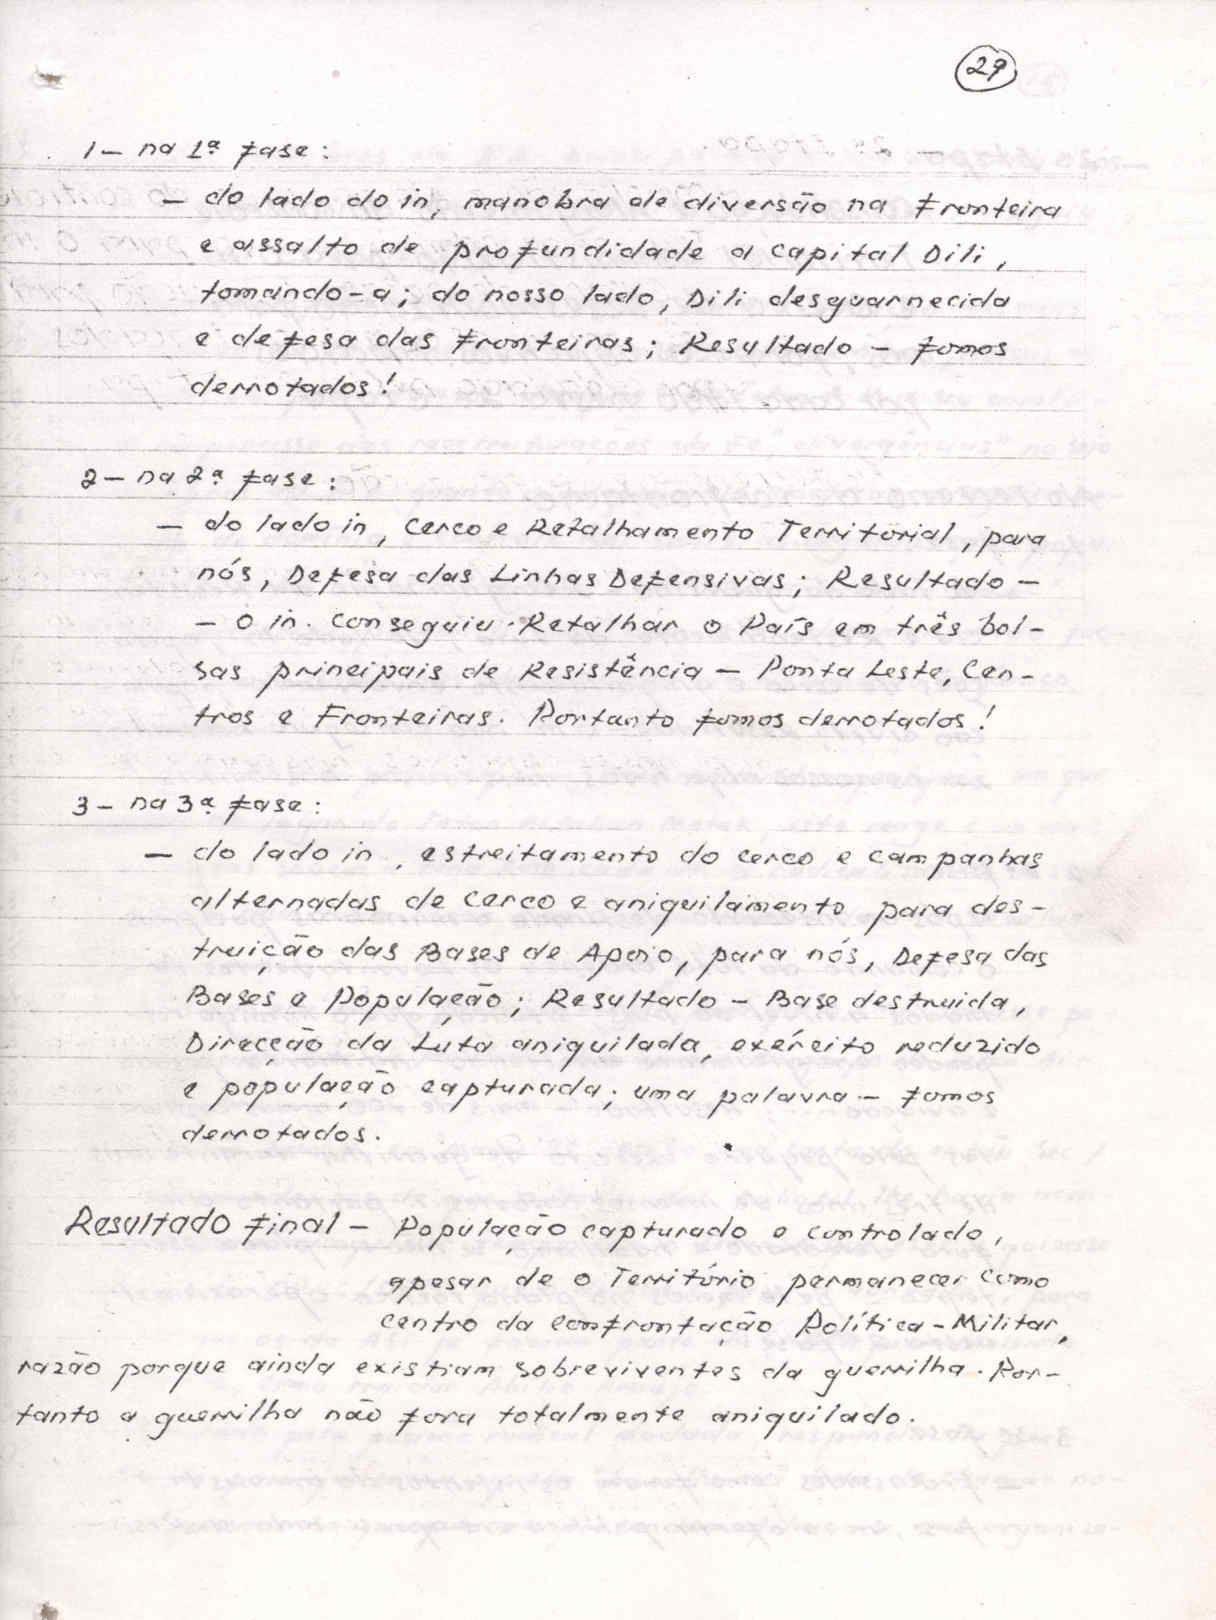 29
1- na 1ª fase:
- do lado do in, manobra de diversão na Fronteira
e assalto de profundidade a capital Dili,
tomando-a; do nosso lado, Dili desguarnecida
e defesa das Fronteiras; Resultado - fomos
derrotados!
2- na 2ª fase:
- do lado in, Cerco e Retalhamento Territorial, para
nós, Defesa das Linhas Defensivas; Resultado -
- O in. Conseguiu Retalhar o País em três bol-
sas principais de Resistência - Ponta Leste, Cen-
tros e Fronteiras. Portanto fomos derrotados!
3- na 3ª fase:
- do lado in, estreitamento do cerco e campanhas
alternadas de Cerco e aniquilamento para des-
truição das Bases de Apoio, para nós, Defesa das
Bases e População; Resultado - Base destruida,
Direcção da Luta aniquilada, exército reduzido
e população capturada; uma palavra - fomos
derrotados.
Resultado final - População capturado e controlado,
apesar de o Território permanecer como
centro da confrontação Política-Militar,
razão porque ainda existiam sobreviventes da guerrilha. Por-
tanto a guerrilha não fora totalmente aniquilado.